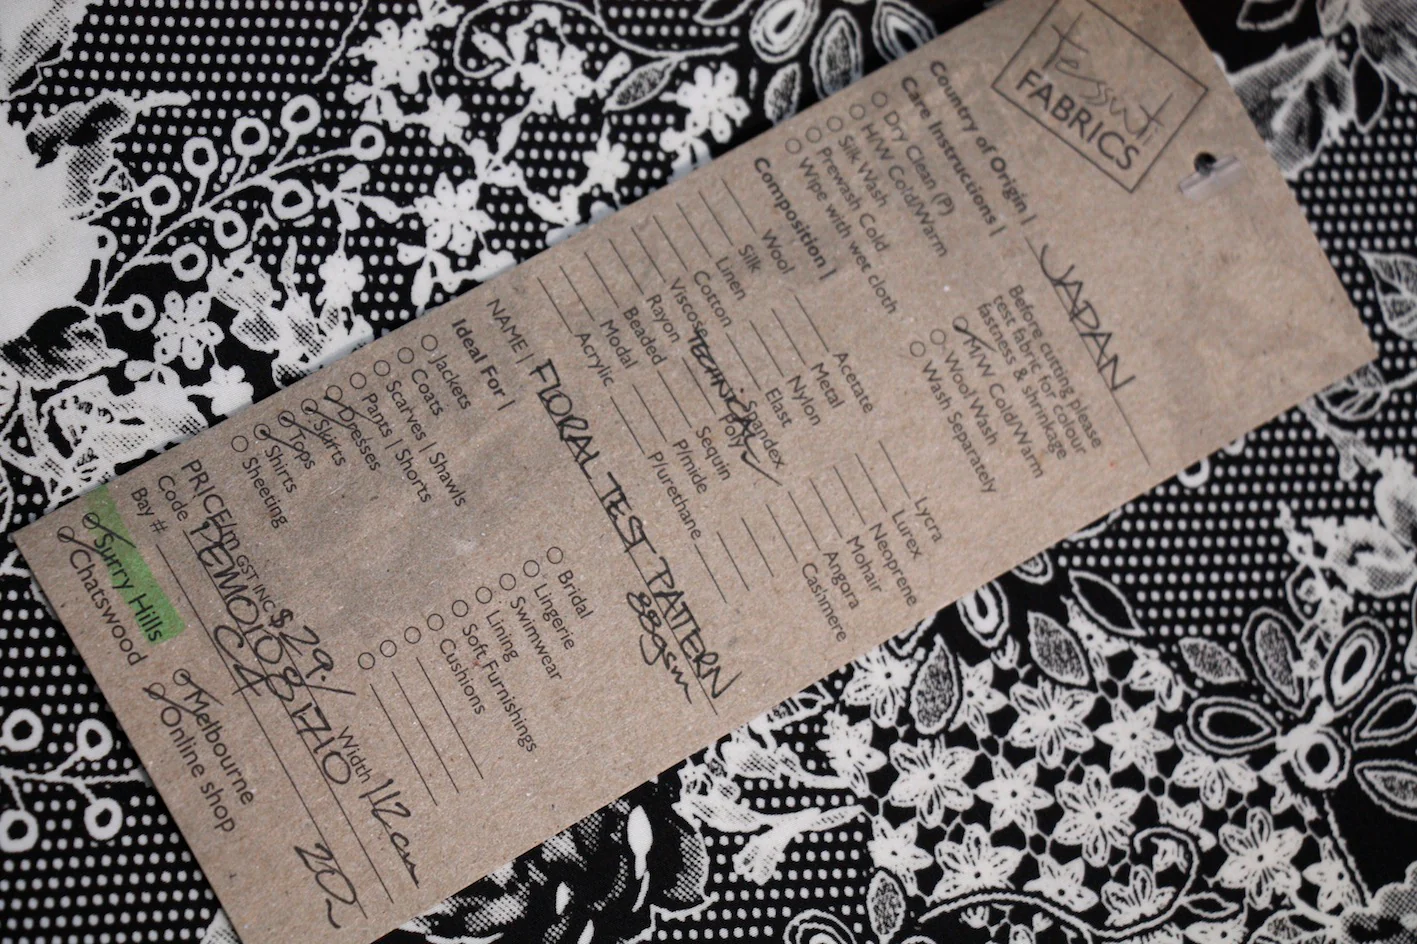 Tessuti
FABRICS
Country of Origin | JAPAN
Care Instructions |
Dry Clean (P)
H/W Cold/Warm
Silk Wash
Prewash Cold
Wipe with wet cloth
Before cutting please
test fabric for colour
fastness & shrinkage
M/W Cold/Warm
Wool Wash
Wash Separately
Composition |
Wool
Silk
Linen
Cotton
Viscose
Rayon
Beaded
Modal
Acrylic
Acetate
Metal
Nylon
Elast
Spandex
TECHNICAL
Poly
Sequin
P/mide
P/urethane
Lycra
Lurex
Neoprene
Mohair
Angora
Cashmere
NAME | FLORAL TEST PATTERN
88gsm
Ideal For |
Jackets
Coats
Scarves | Shawls
Pants | Shorts
Dresses
Skirts
Tops
Shirts
Sheeting
Bridal
Lingerie
Swimwear
Lining
Soft Furnishings
Cushions
PRICE/m GST INC $29./ Width 112cm
Code
Bay # C4
Surry Hills
Chatswood
Melbourne
Online shop